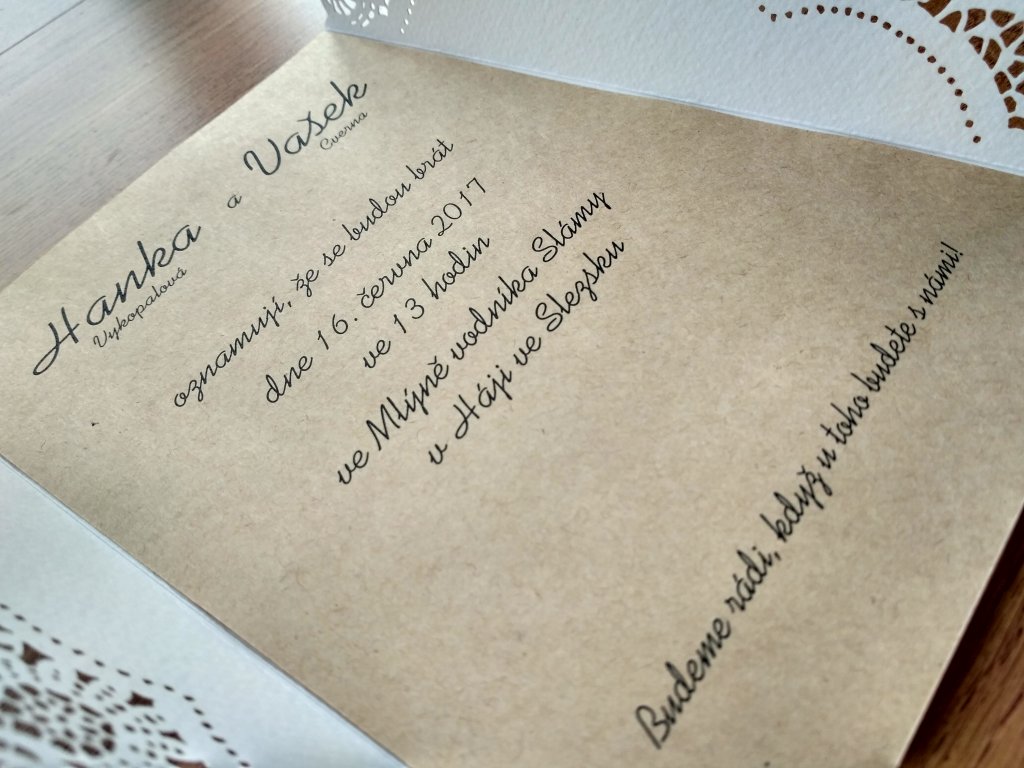 Hanka a Vašek
Vykopalová Cverna
oznamují, že se budou brát
dne 16. června 2017
ve 13 hodin
ve Mlýně vodníka Slámy
v Háji ve Slezsku
Budeme rádi, když u toho budete s námi!